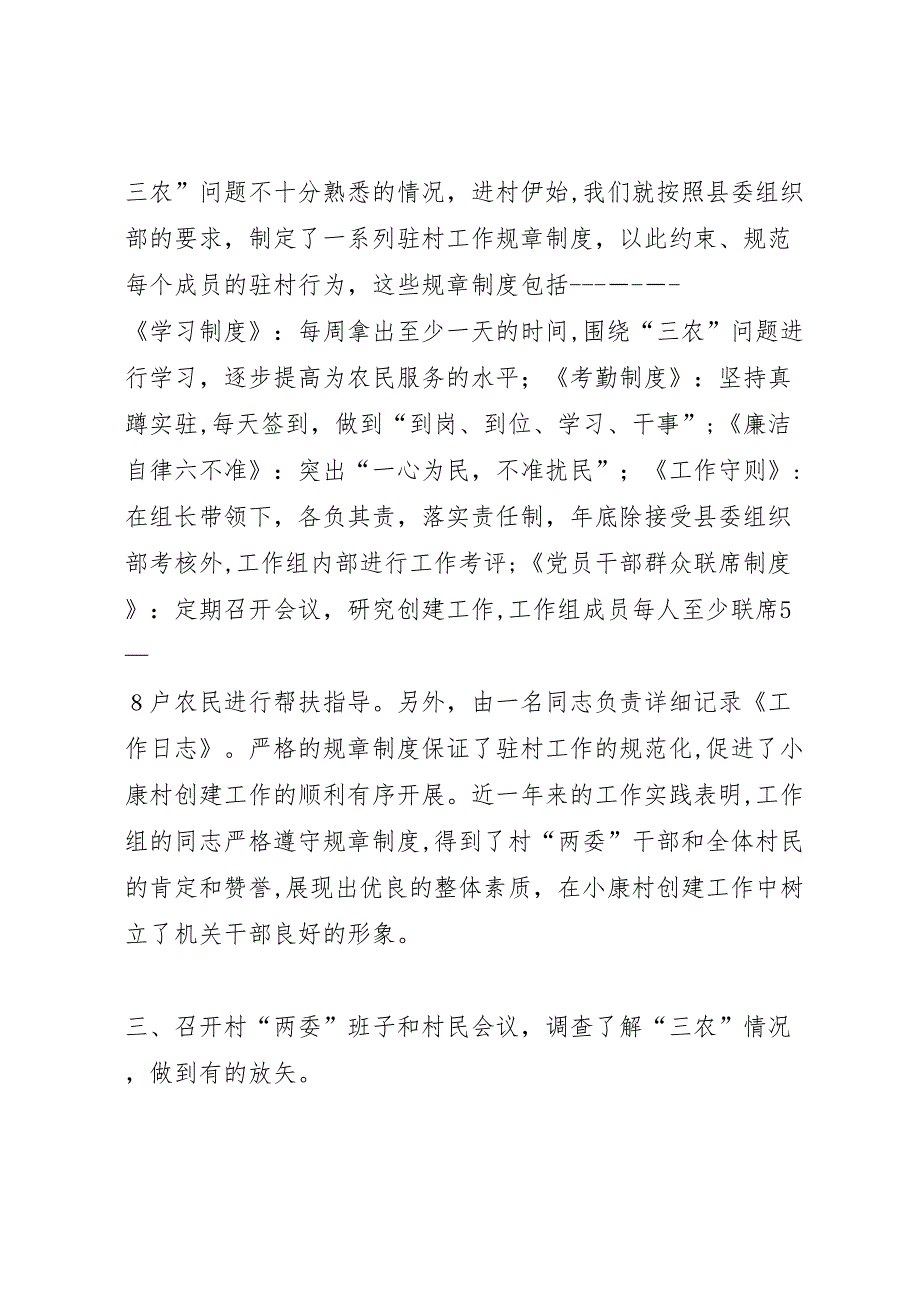 三农”问题不十分熟悉的情况，进村伊始,我们就按照县委组织
部的要求，制定了一系列驻村工作规章制度，以此约束、规范
每个成员的驻村行为，这些规章制度包括---—-—-
《学习制度》：每周拿出至少一天的时间,围绕“三农”问题进
行学习，逐步提高为农民服务的水平；《考勤制度》：坚持真
蹲实驻,每天签到，做到“到岗、到位、学习、干事”;《廉洁
自律六不准》：突出“一心为民，不准扰民”；《工作守则》:
在组长带领下，各负其责，落实责任制，年底除接受县委组织
部考核外,工作组内部进行工作考评;《党员干部群众联席制度
》：定期召开会议，研究创建工作,工作组成员每人至少联席5
—
８户农民进行帮扶指导。另外，由一名同志负责详细记录《工
作日志》。严格的规章制度保证了驻村工作的规范化,促进了小
康村创建工作的顺利有序开展。近一年来的工作实践表明,工作
组的同志严格遵守规章制度,得到了村“两委”干部和全体村民
的肯定和赞誉,展现出优良的整体素质，在小康村创建工作中树
立了机关干部良好的形象。
三、召开村“两委”班子和村民会议，调查了解“三农”情况
，做到有的放矢。